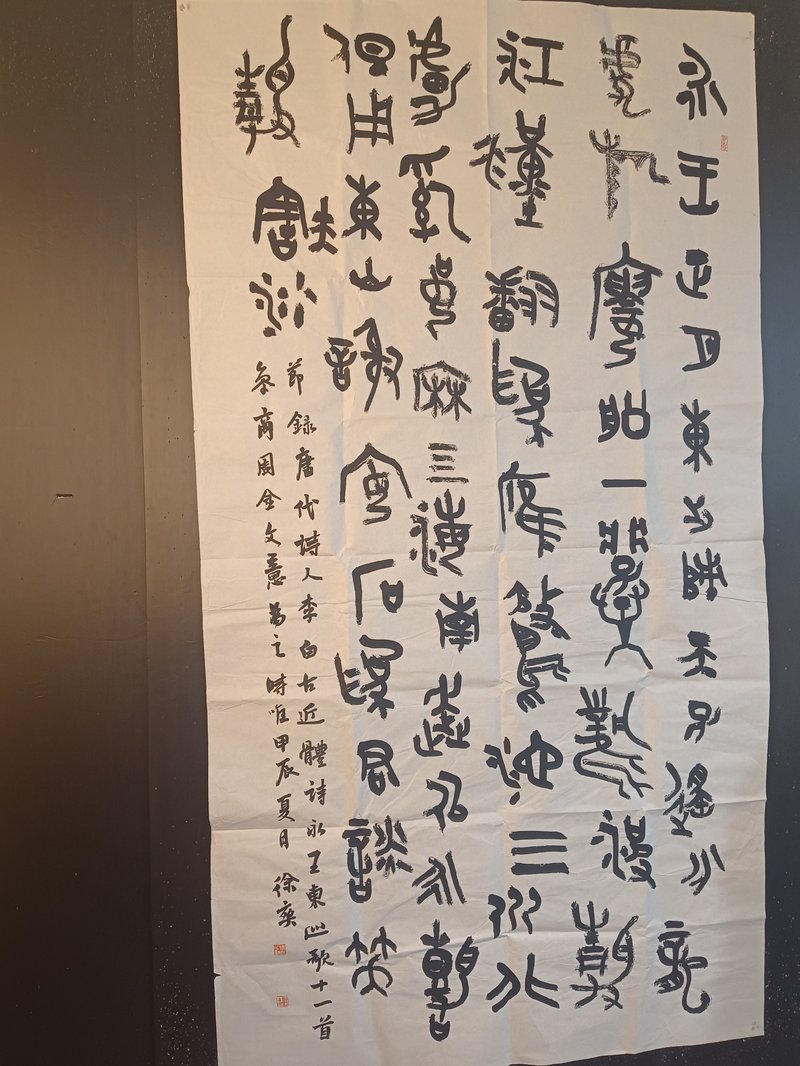 永王正月東出師天子遙分龍
虎旂樓船一舉風波靜
江漢翻為雁鶩池三川北
虜亂如麻四海南奔似永嘉
但用東山謝安石為君談笑
靜胡沙
節錄唐代詩人李白古近體詩永王東巡歌十一首
參商周金文意為之時唯甲辰夏日 徐